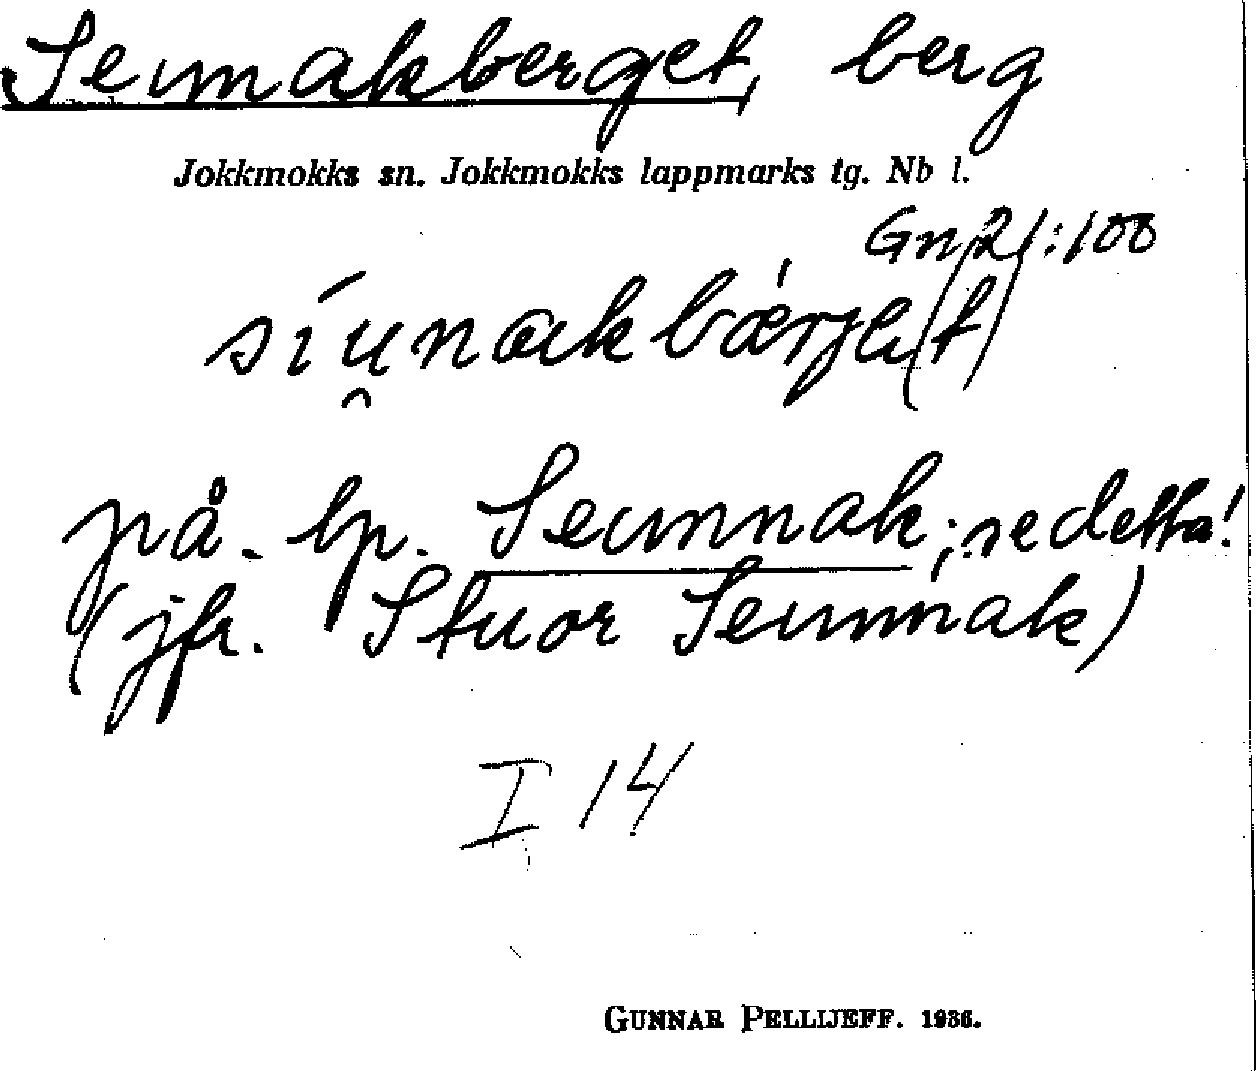 Seunakberget, berg
Jokkmokks sn. Jokkmokks lappmarks tg. Nb l.
Gn 21:100
síu̯nakbærje(t)
på lp. Seunnak; se detta!
(jfr. Stuor Seunnak)
I 14
GUNNAR PELLIJEFF. 1936.